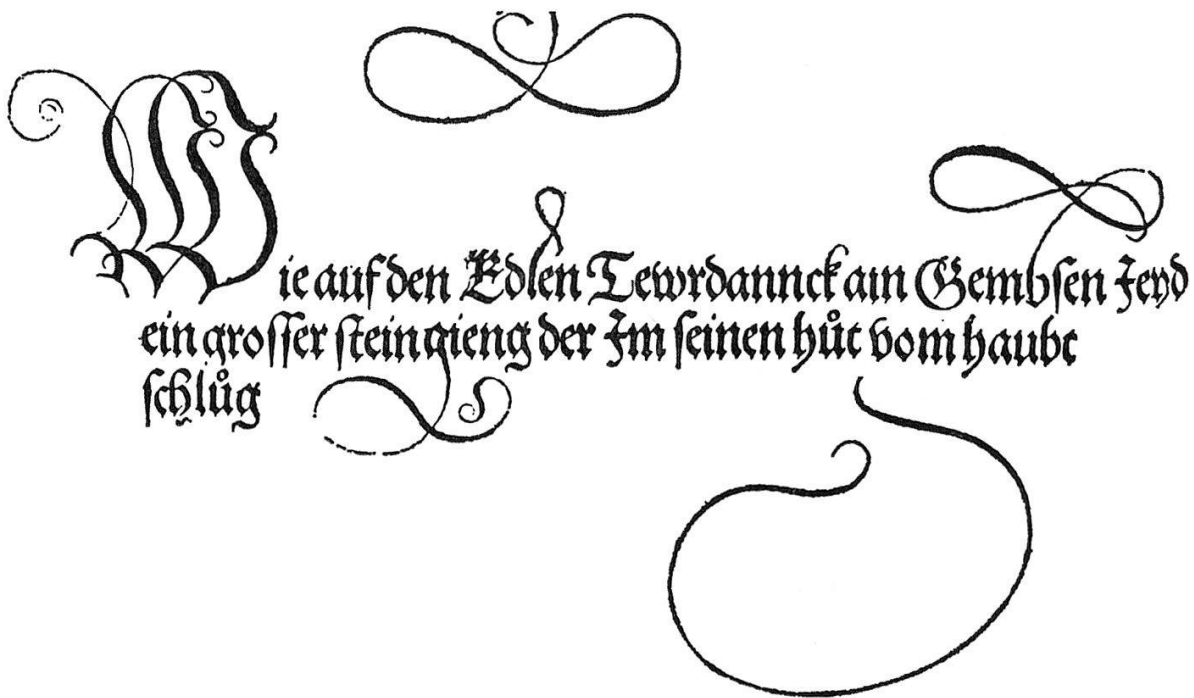 Wie auf den Edlen Tewrdannck am Gembsen Jeyd
ein grosser stein gieng der Im seinen hůt vom haubt
schlůg